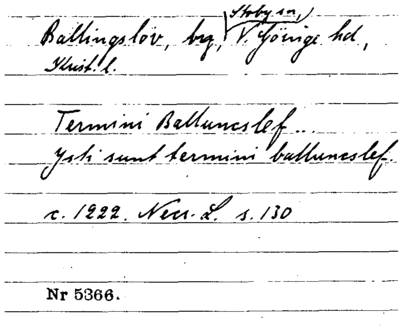 Stoby sn,
Ballingslöv, by, V. Göinge hd,
Krist. l.
Termini Balluncslef...
Isti sunt termini balluncslef.
c. 1222. Necr. L. s. 130
Nr 5366.